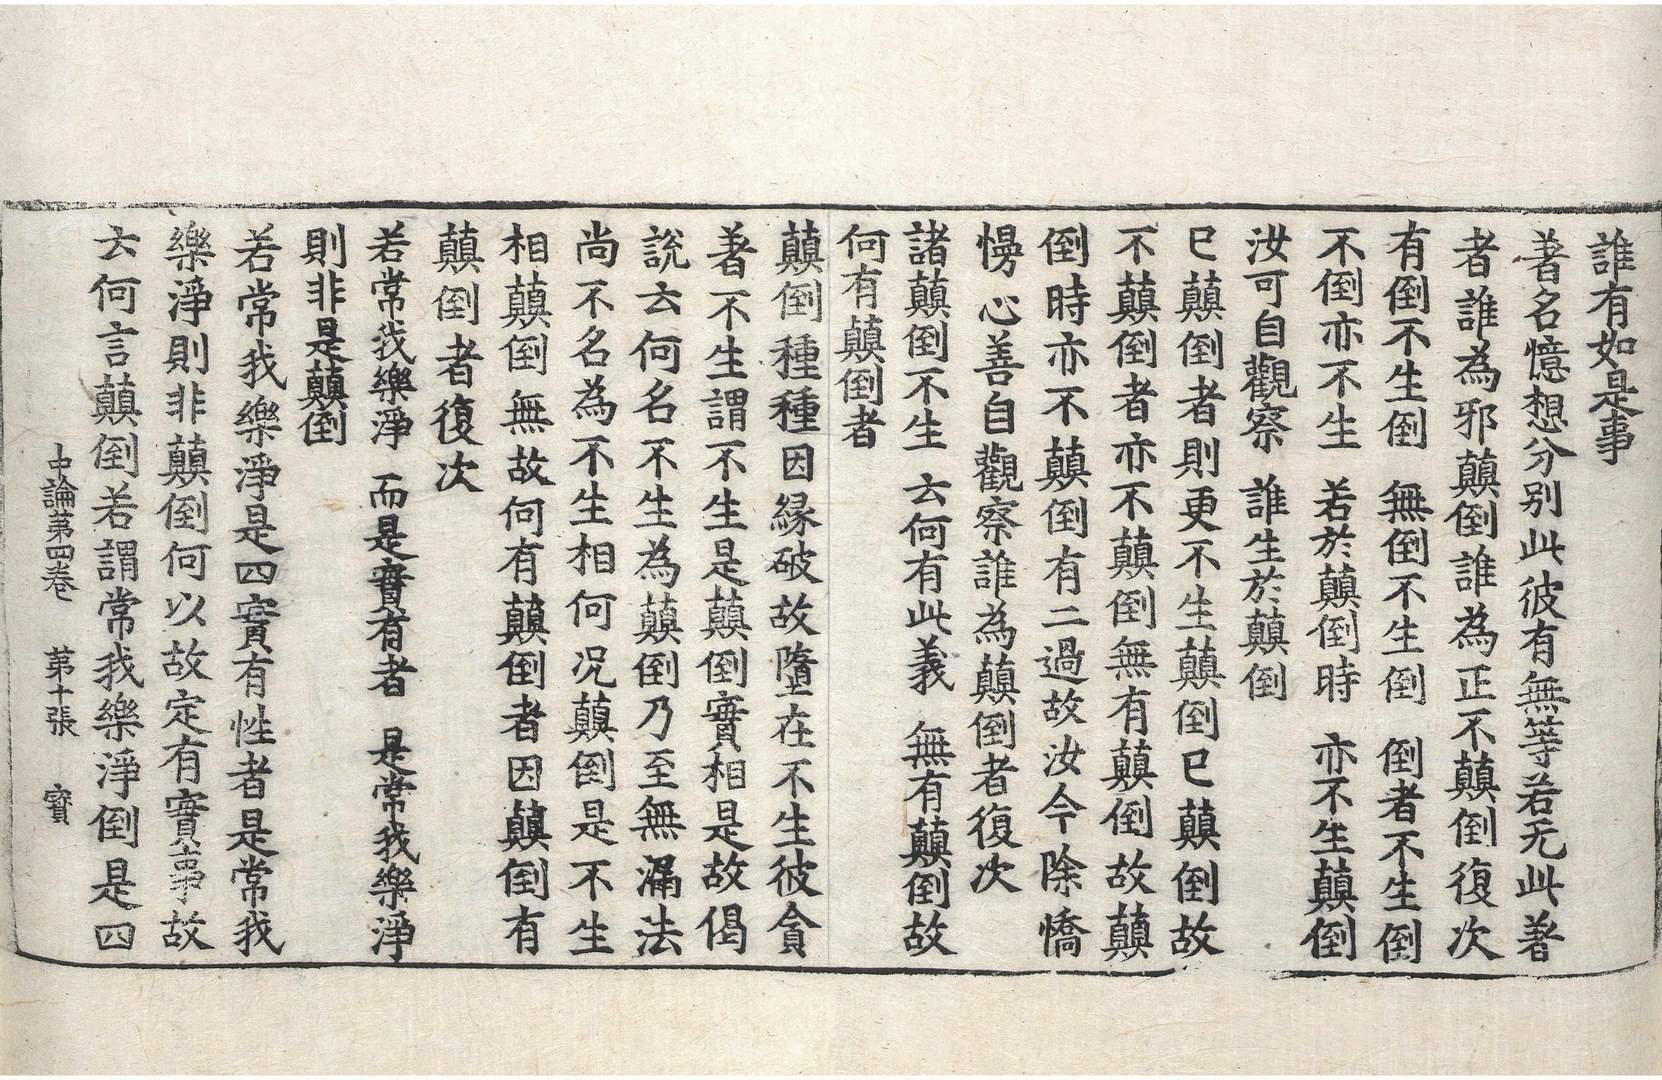 誰有如是事
著名憶想分別此彼有無等若无此著
者誰為邪顛倒誰為正不顛倒復次
有倒不生倒 無倒不生倒 倒者不生倒
不倒亦不生 若於顛倒時 亦不生顛倒
汝可自觀察 誰生於顛倒
已顛倒者則更不生顛倒已顛倒故
不顛倒者亦不顛倒無有顛倒故顛
倒時亦不顛倒有二過故汝今除憍
慢心善自觀察誰為顛倒者復次
諸顛倒不生 云何有此義 無有顛倒故
何有顛倒者
顛倒種種因緣破故墮在不生彼貪
著不生謂不生是顛倒實相是故偈
說云何名不生為顛倒乃至無漏法
尚不名為不生相何況顛倒是不生
相顛倒無故何有顛倒者因顛倒有
顛倒者復次
若常我樂淨 而是實有者 是常我樂淨
則非是顛倒
若常我樂淨是四實有性者是常我
樂淨則非顛倒何以故定有實事故
云何言顛倒若謂常我樂淨倒是四
中論第四卷 第十張 寶